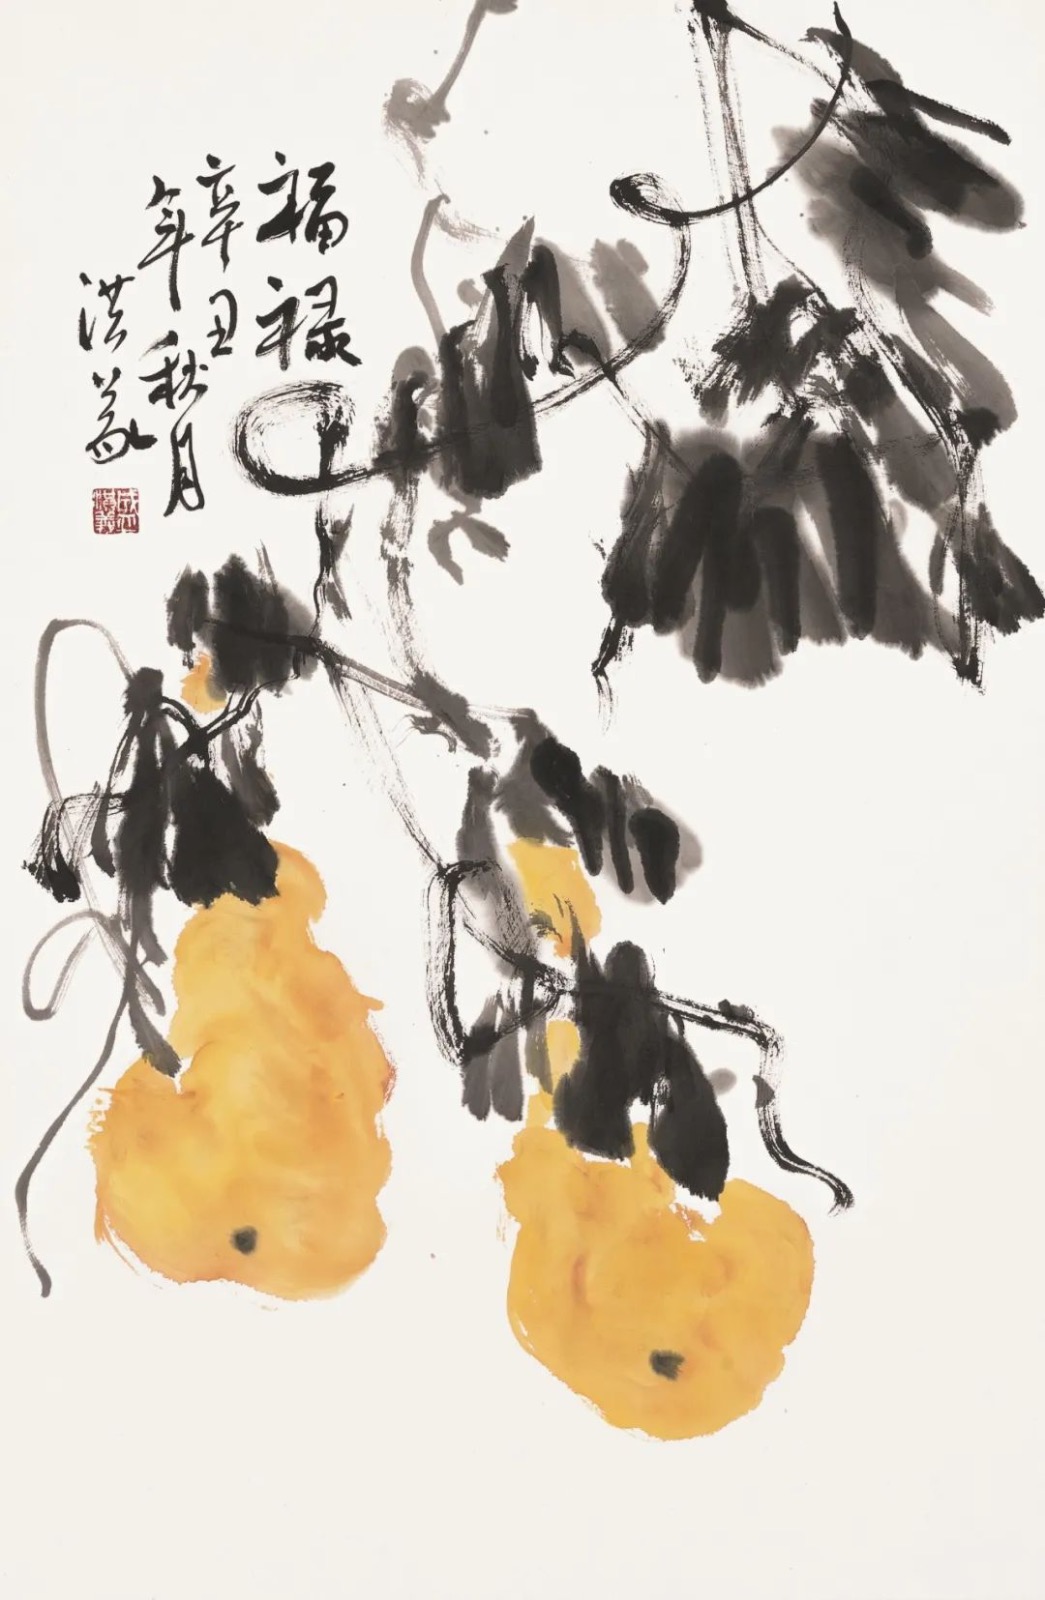 福禄
辛丑
年秋月
洪義